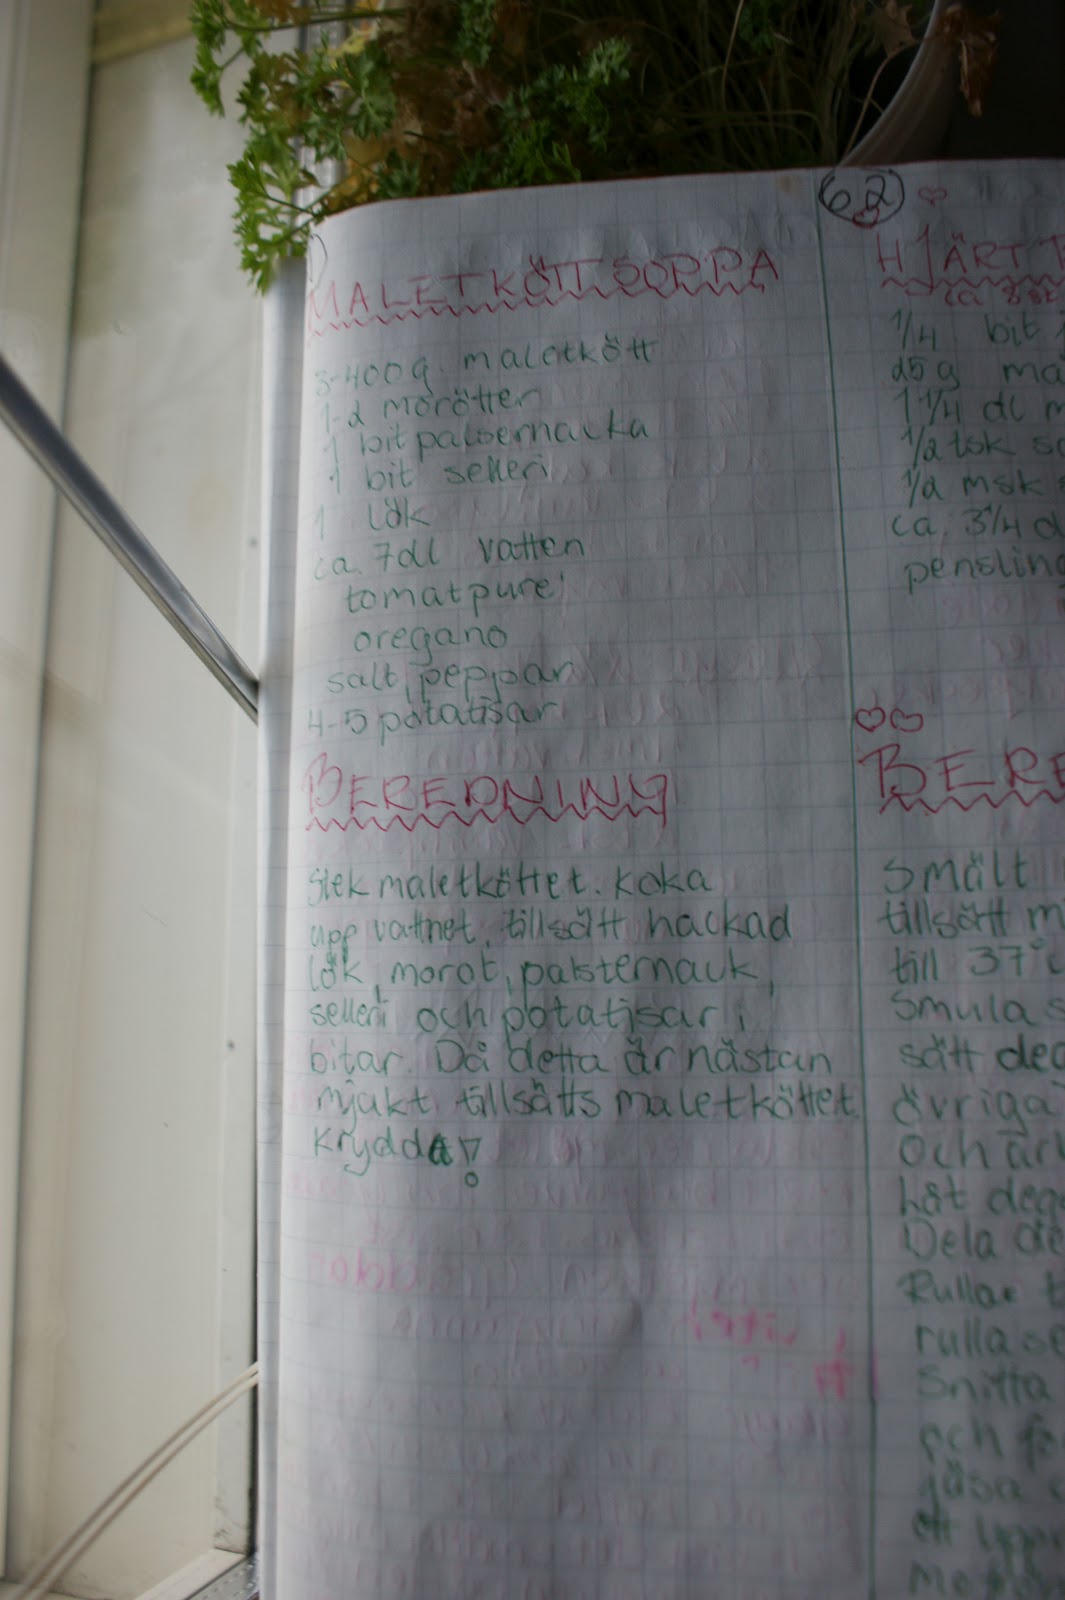 MALETKÖTTSOPPA
3-400g. maletkött
1-2 morötter
1 bit palsernacka
1 bit selleri
1 lök
ca. 7dl vatten
tomatpure'
oregano
salt, peppar
4-5 potatisar
BEREDNING
Stek maletköttet. Koka
upp vattnet, tillsätt hackad
lök, morot, palsternack,
selleri och potatisar i
bitar. Då detta är nästan
mjukt tillsätts maletköttet.
Krydda!
62
HJÄRT
ca
1/4 bit
25 g
1 1/4 dl
1/2 tsk
1/2 msk
ca. 3 1/4 d
BERE
Smält
tillsätt
till 37°
Smula
övriga
Och
Dela
rulla
Snitta